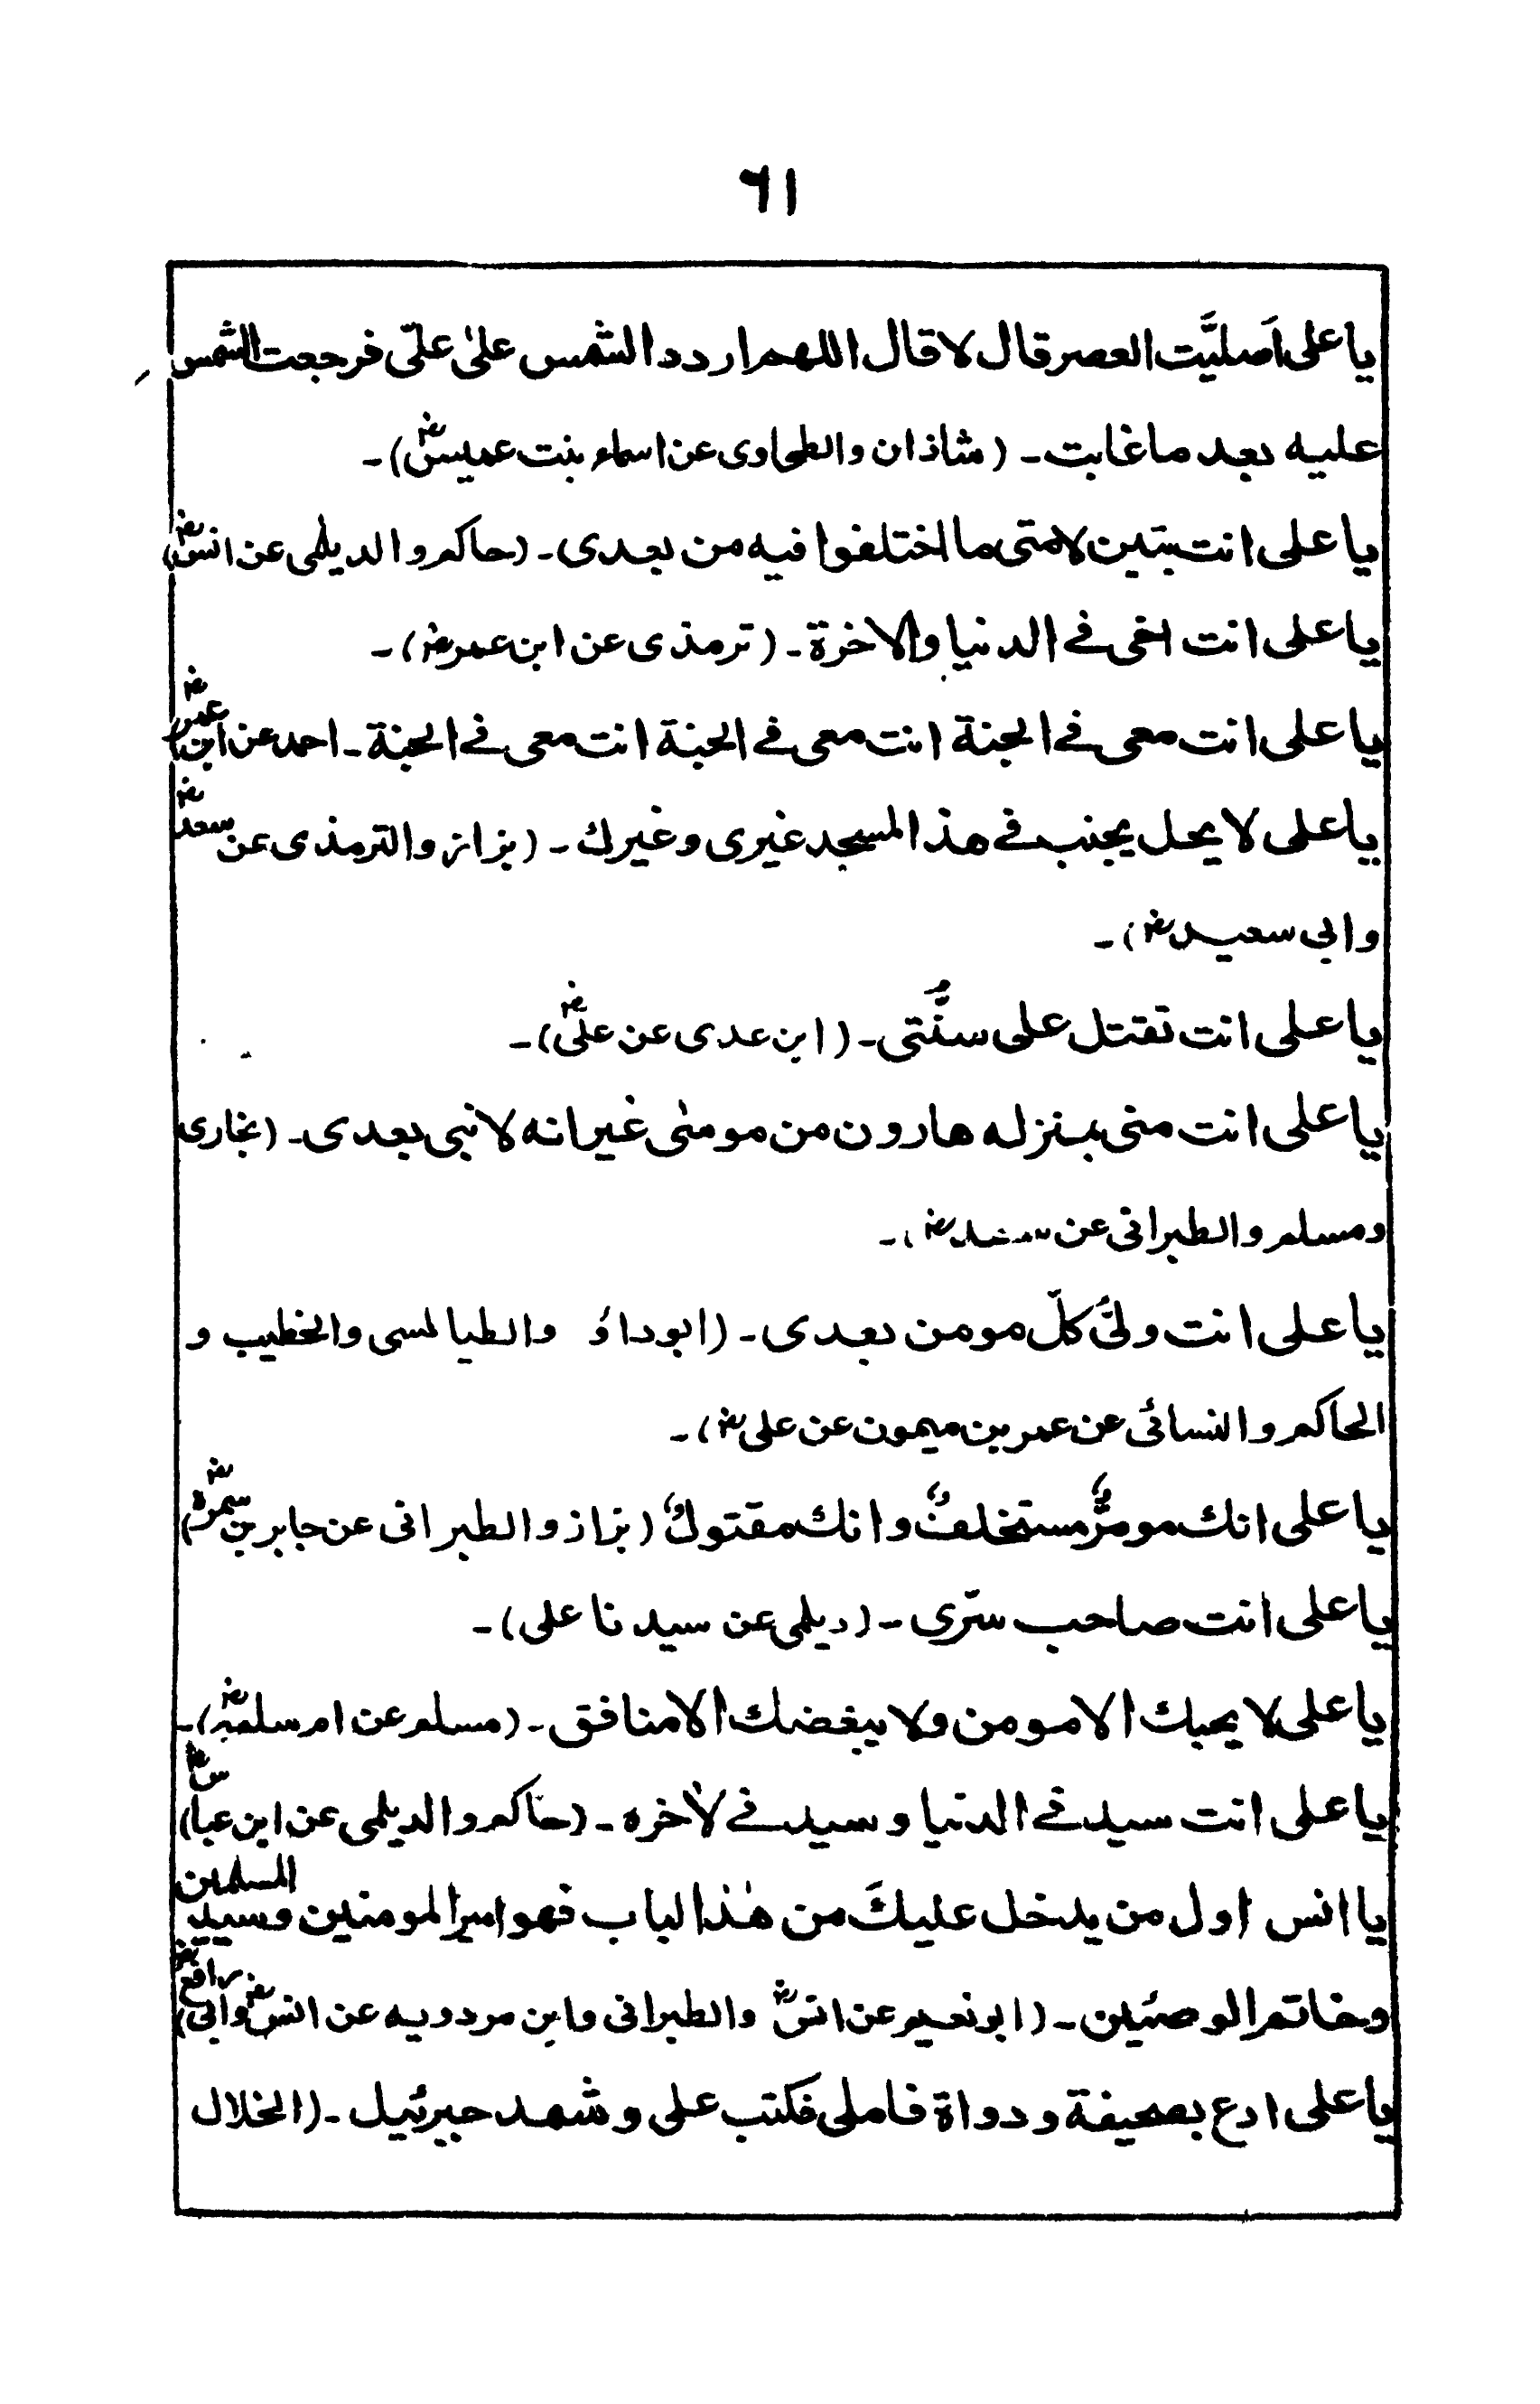 ٦١
يا على اَصليَّت العصر قال لا قال اللهم اردد الشمس علىٰ علىّ فرجعت الشمس
عليه بعد ما غابت۔ (شاذان والطحاوى عن اسماء بنت عميسؓ)۔
يا على انت تبين لامتى ما اختلفوا فيه من بعدى۔ (حاكم والديلمى عن انسؓ)
يا على انت اخى فے الدنيا والاخرة۔ (ترمذى عن ابن عمرؓ)۔
يا على انت معى فے الجنة انت معى فے الجنة انت معى فے الجنة۔ احمد عن ابن عمرؓ)
يا على لا يحل يجنب فے هذا المسجد غيرى وغيرك۔ (بزاز والترمذى عن سعدؓ
وابى سعيدؓ)۔
يا على انت تقتل على سنُّتى۔ (ابن عدى عن علىؓ)۔
يا على انت منى بمنزله هارون من موسٰى غير انه لا نبى بعدى۔ (بخارى
ومسلم والطبرانى عن سعدؓ)۔
يا على انت ولىُّ كلّ مومن بعدى۔ (ابوداؤ والطيالسى والخطيب و
الحاكم والنسائى عن عمر بن ميمون عن علىؓ)۔
يا على انك مومرٌّ مستخلفٌ وانك مقتولٌ (بزاز والطبرانى عن جابر بن سمرهؓ)
يا على انت صاحب سرّى۔ (ديلمى عن سيدنا على)۔
يا على لا يحبك الا مومن ولا يبغضك الا منافق۔ (مسلم عن ام سلمهؓ)۔
يا على انت سيد فے الدنيا وسيد فے لاٰخره۔ (حاكم والديلمى عن ابن عباسؓ)
يا انس اول من يدخل عليكَ من هٰذا الباب فهو امير المومنين وسيد المسلمين
وخاتم الوصيّين۔ (ابونعيم عن انسؓ والطبرانى وابن مردويه عن انسؓ وابى رافعؓ)
يا على ادع بصحيفة ودواة فاملى فكتب على وشهد جبرئيل۔ (الخلال